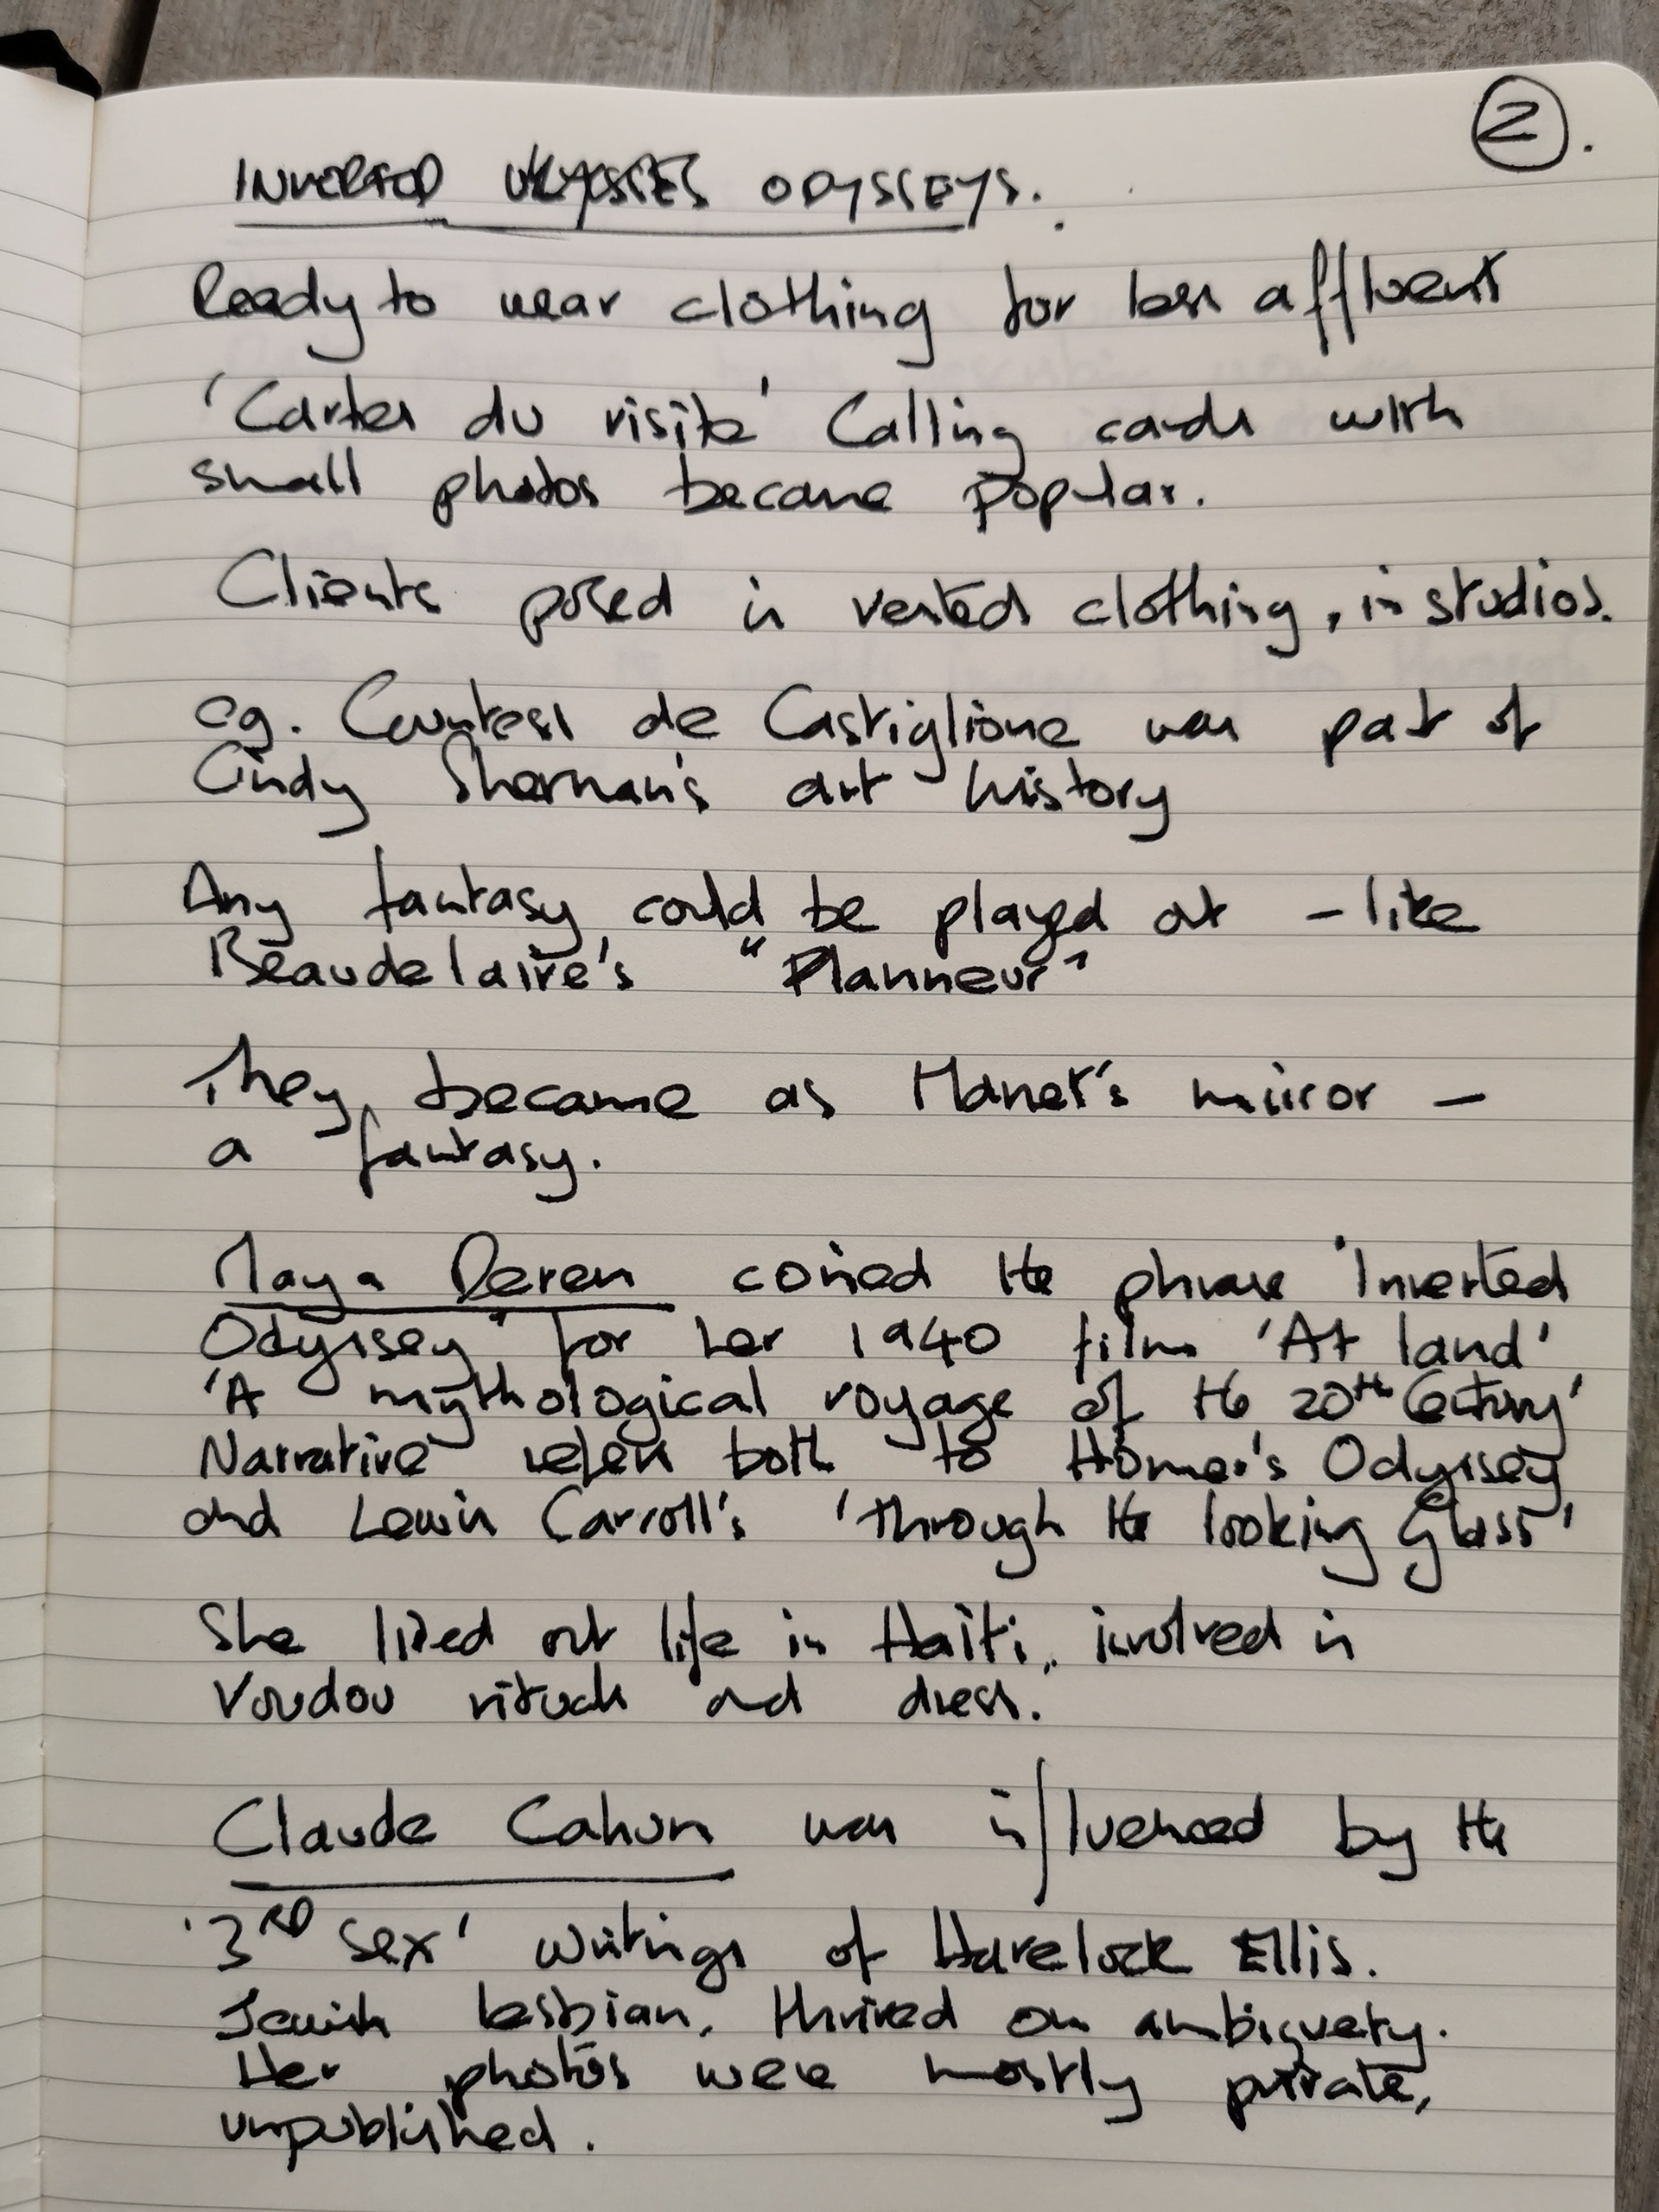 2.
INVERTED ULYSSES ODYSSEYS.
Ready to wear clothing for less affluent
'Cartes du visite' Calling cards with
small photos became popular.
Clients posed in rented clothing, in studios.
eg. Countess de Castiglione was part of
Cindy Sherman's art history
Any fantasy could be played out - like
Beaudelaire's "Planneur"
They became as Manet's mirror -
a fantasy.
Maya Deren coined the phrase 'Inverted
Odyssey' for her 1940 film 'At land'
'A mythological voyage of the 20th Century'
Narrative refers both to Homer's Odyssey
and Lewis Carroll's 'through the looking Glass'
She lived out life in Haiti, involved in
Voudou rituals and dress.
Claude Cahun was influenced by the
'3RD Sex' writings of Havelock Ellis.
Jewish lesbian, thrived on ambiguety.
Her photos were mostly private,
unpublished.